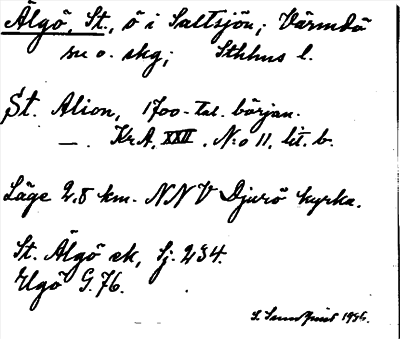 Älgö, St., ö i Saltsjön; Värmdö
sn o. skg; Sthlms l.
St. Alion, 1700-tal. början.
— . Kr.A. XXII. N:o 11. lit. b.
Läge 2,8 km. NNV Djurö kyrka.
St. Älgö sk, Sj. 234.
Elgö G.76.
S. Sundquist 1936.